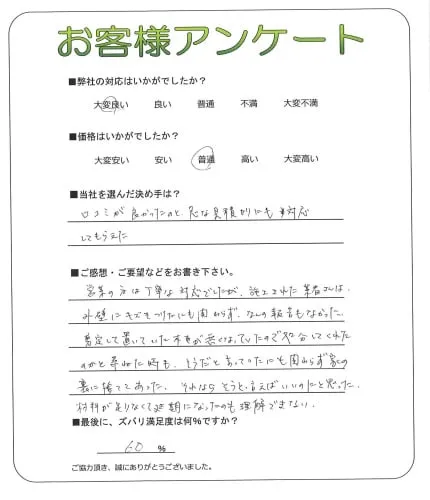 お客様アンケート
■弊社の対応はいかがでしたか?
大変良い 良い 普通 不満 大変不満
■価格はいかがでしたか?
大変安い 安い 普通 高い 大変高い
■当社を選んだ決め手は?
口コミが良かったのと、急な見積りにも対応
してもらえた
■ご感想・ご要望などをお書き下さい。
営業の方は丁寧な対応でしたが、施工された業者さんは、
外壁にキズをつけたにも関わらず、なんの報告もなかった。
剪定して置いていた木が無くなっていたので処分してくれた
のかと尋ねた時も、そうだと言っていたにも関わらず家の
裏に捨ててあった。それならそうと言えばいいのにと思った。
材料が足りなくて延期になったのも理解できない。
■最後に、ズバリ満足度は何%ですか?
60 %
ご協力頂き、誠にありがとうございました。